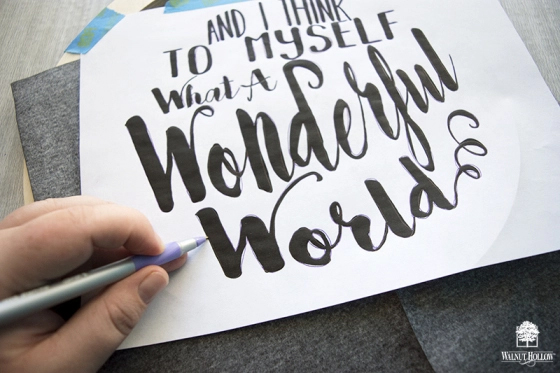 AND I THINK
TO MYSELF
What A
Wonderful
World
WALNUT HOLLOW